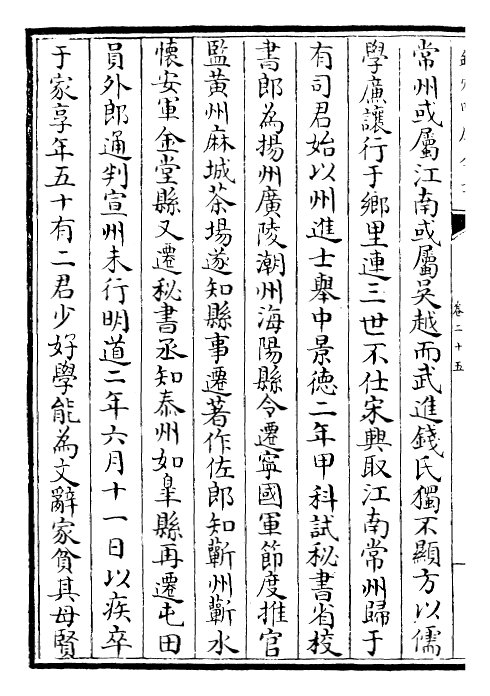 卷二十五
常州或屬江南或屬吳越而武進錢氏獨不顯方以儒
學廉讓行于鄉里連三世不仕宋興取江南常州歸于
有司君始以州進士舉中景德二年甲科試秘書省校
書郎為揚州廣陵潮州海陽縣令遷寧國軍節度推官
監黄州麻城茶場遂知縣事遷著作佐郎知蘄州蘄水
懷安軍金堂縣又遷秘書丞知泰州如臯縣再遷屯田
員外郎通判宣州未行明道二年六月十一日以疾卒
于家享年五十有二君少好學能為文辭家貧其母賢